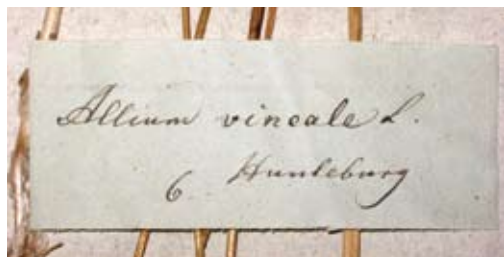 Allium vineale L.
6 Hunteburg